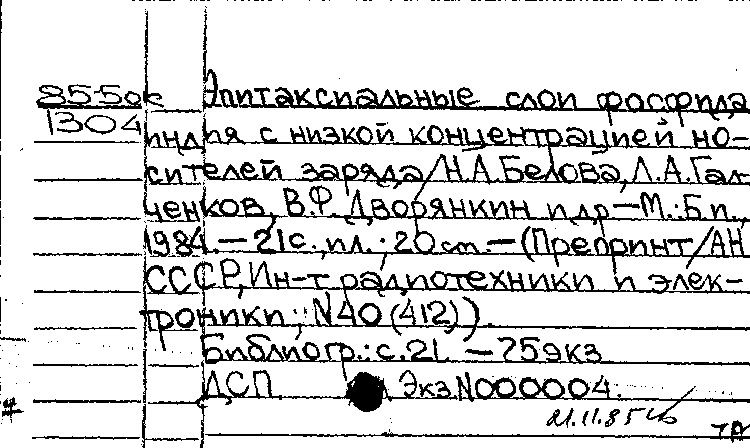 85-5ок Эпитаксиальные слои фосфида
1304 индия с низкой концентрацией но-
сителей заряда/Н.А.Белова, Л.А.Гал-
ченков, В.Ф.Дворянкин и др.—М.: Б.и.,
1984.—21с.,ил.;20см.—(Препринт/АН
СССР,Ин-т радиотехники и элек-
троники; N40(412)).
Библиогр.: с.21. —75экз
ДСП Экз.N000004.
21.11.85